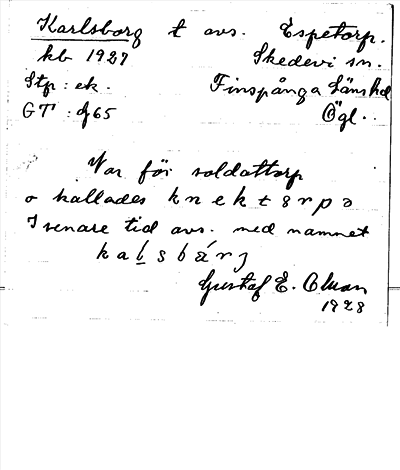 Karlsborg t avs. Espetorp.
kb 1927 Skedevi sn.
Stp: ek. Finspånga Länshd
GT: df65 Ögl.
Var för soldattorp
o kallades knektsrpa
I senare tid avs. med namnet
kalsbárj
Gustaf E. Olman
1928